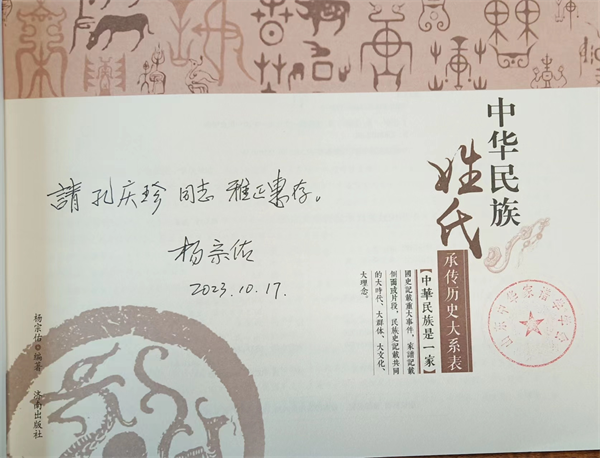 請孔庆珍同志雅正惠存。
杨宗佑
2023.10.17.
中华民族
姓氏
承传历史大系表
【中華民族是一家】
國史記載重大事件，家譜記載
側面或片段，民族史記載共同
的大時代、大群体、大文化、
大理念。
杨宗佑 编著 济南出版社